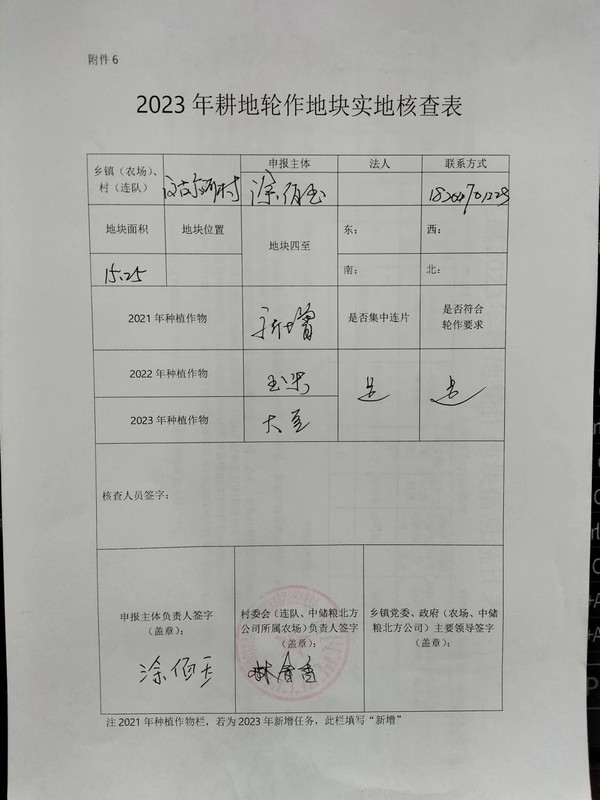 附件 6
2023 年耕地轮作地块实地核查表
乡镇（农场）、
村（连队）
申报主体
法人
联系方式
地块面积
地块位置
地块四至
东：
西：
15.25
南：
北：
2021 年种植作物
新增
是否集中连片
是否符合
轮作要求
2022 年种植作物
玉米
是
是
2023 年种植作物
大豆
核查人员签字：
申报主体负责人签字
（盖章）：
村委会（连队、中储粮北方
公司所属农场）负责人签字
（盖章）：
乡镇党委、政府（农场、中储
粮北方公司）主要领导签字
（盖章）：
注 2021 年种植作物栏，若为 2023 年新增任务，此栏填写“新增”